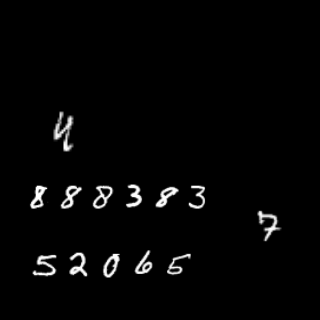 4
888383
7
52065